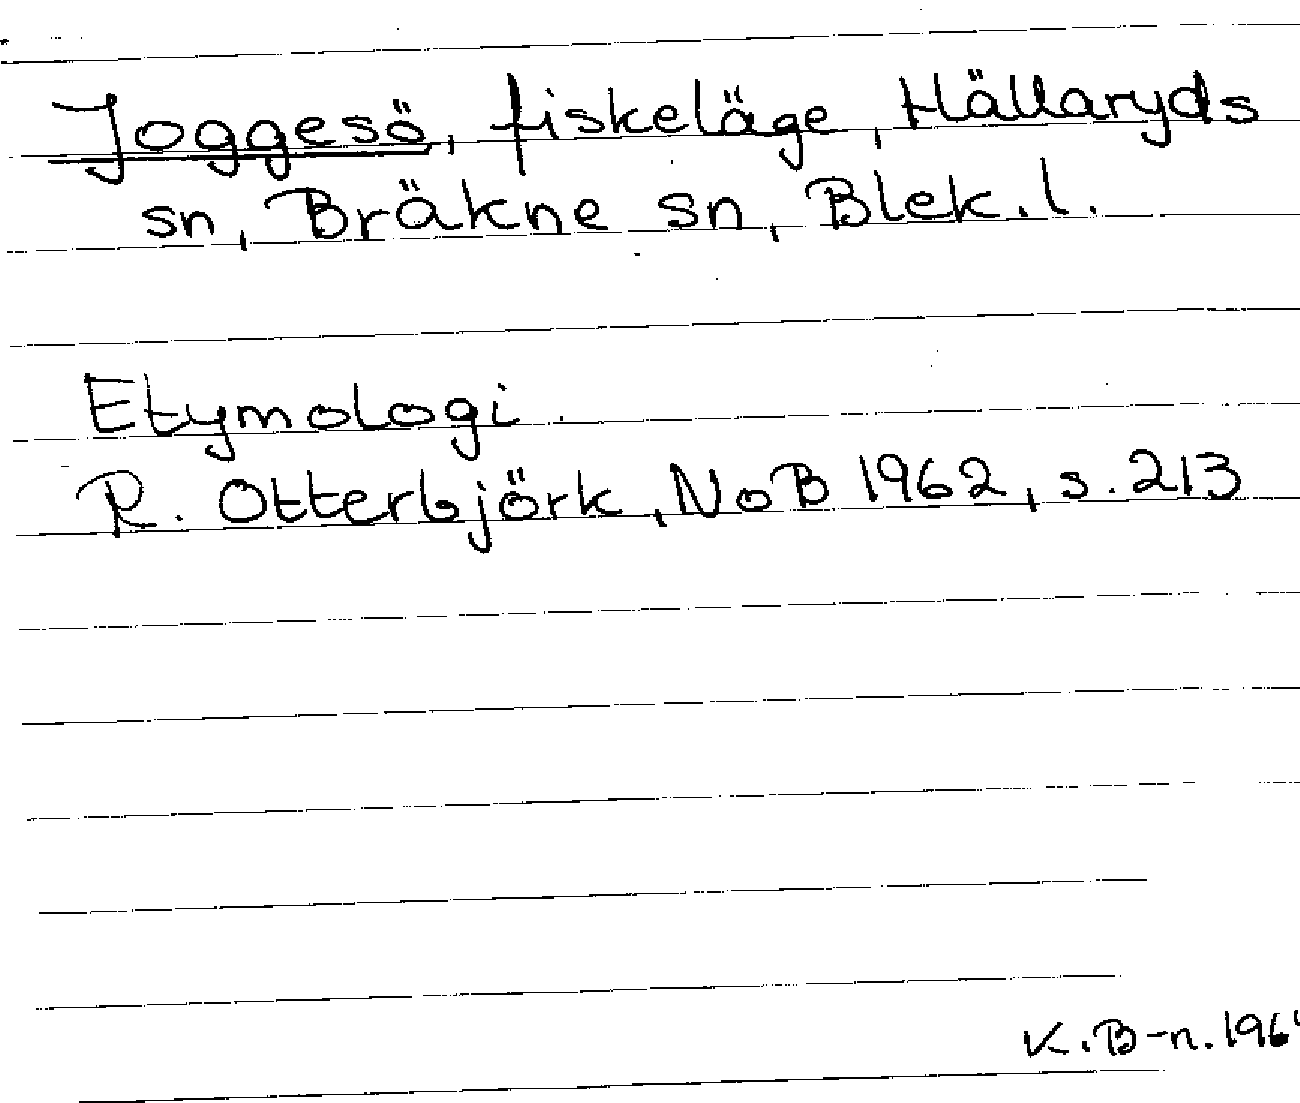 Joggesö, fiskeläge, Hällaryds
sn, Bräkne sn, Blek. l.
Etymologi.
R. Otterbjörk, NoB 1962, s. 213
K. B-n.